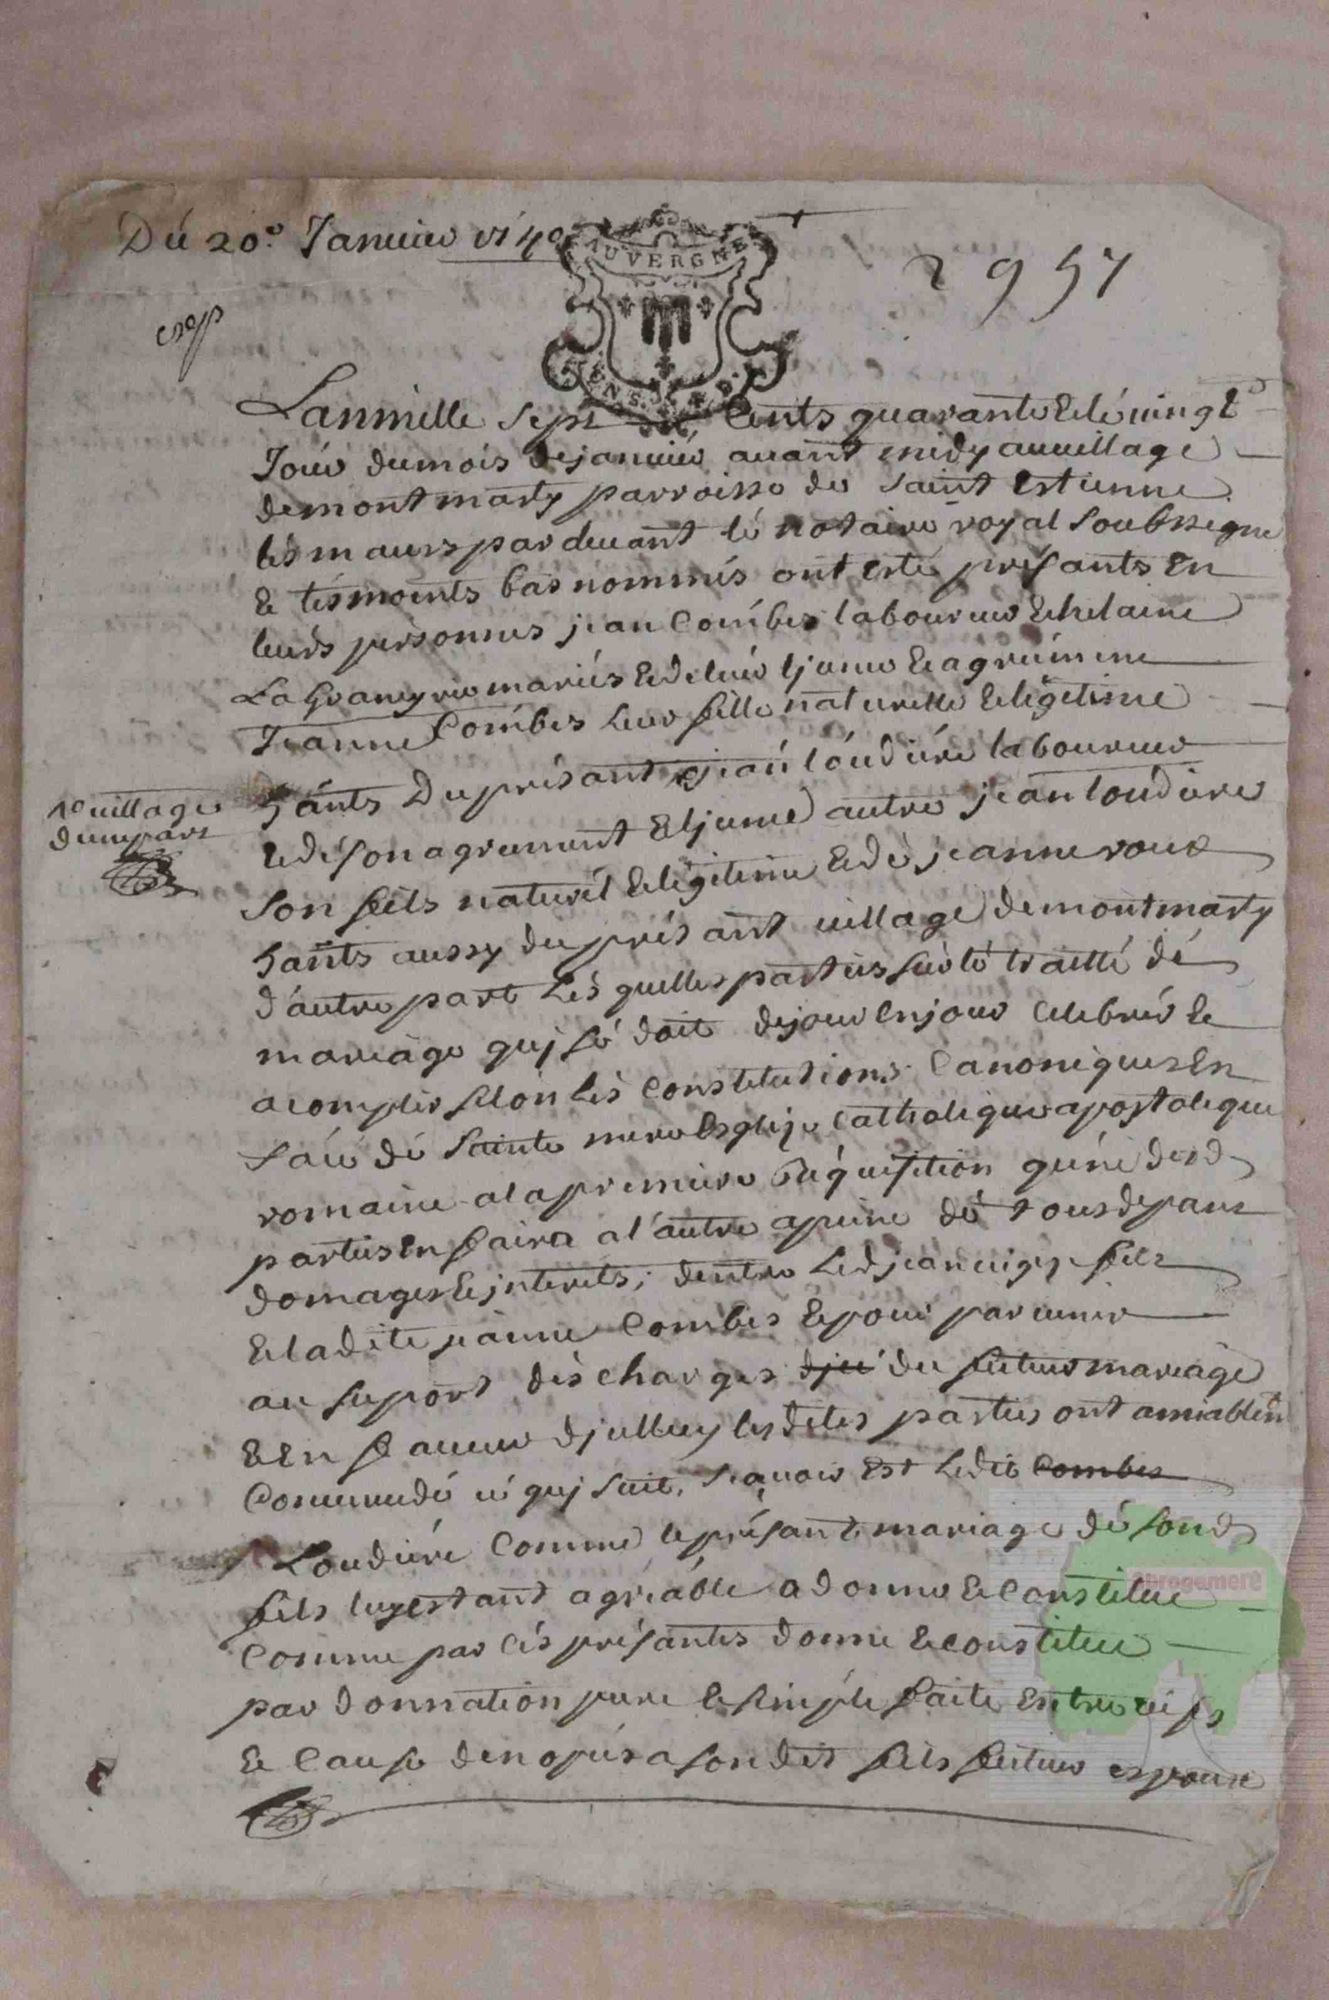 Du 20e Janvier 1740
AUVERGNE
2 9 5 7
GENS.
exp
Lanmille sept cents quarante & lé vingt
Jour du mois de janvier avant midy au village
de montmarty parroisse de saint estienne
lés maurs par devant lé notaire royal soubssigne
& tésmoints bas nommés ont esté présants en
leurs personnes jean Combes laboureur & helaine
La Graneyrie mariés & de leur ljance & agreimene
Jeanne Combes leur fille naturelle & legitime
hants du présant jean loudiéré laboureur
1e village
d'une part
& de son agrement & ljance autre jean loudiere
son fils naturél & légitime & dé jeanne roux
hants aussy du présant village de montmarty
d'autre part Lés quelles parties sur lé traitté dé
mariage quj sé doit de jour en jour célébrér &
acomplir sélon lés constitutions Canoniques en
face dé sainte mere Esglize Catholique apostolique
romaine a la premiere réquisition qué né desd
parties en faira a l'autre a peine dé tous depans
domages & jnterets; dentre Led jean vigy fils
& ladite jeanne Combes & pour parvenir
au suport dés charges djcé du futeur mariage
& en faveur djcelluy lesdites parties ont amiablemt
Convenu dé cé quj suit, scavoir est Ledit Combes
Loudiéré Comme le présant mariage dé sond
fils luy estant agréable a donne & constitue
Comme par cés présantes donne & constitue
par donnation pure & simple faite entre vifs
& cause den opéra son dit fils futeur espoux
aprogemere